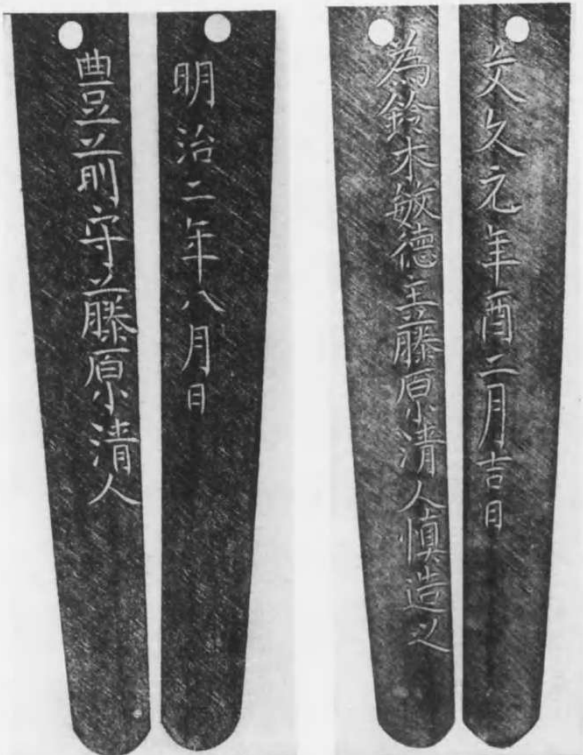 文久元年酉二月吉日
為鈴木敏徳主藤原清人慎造之
明治二年八月日
豊前守藤原清人